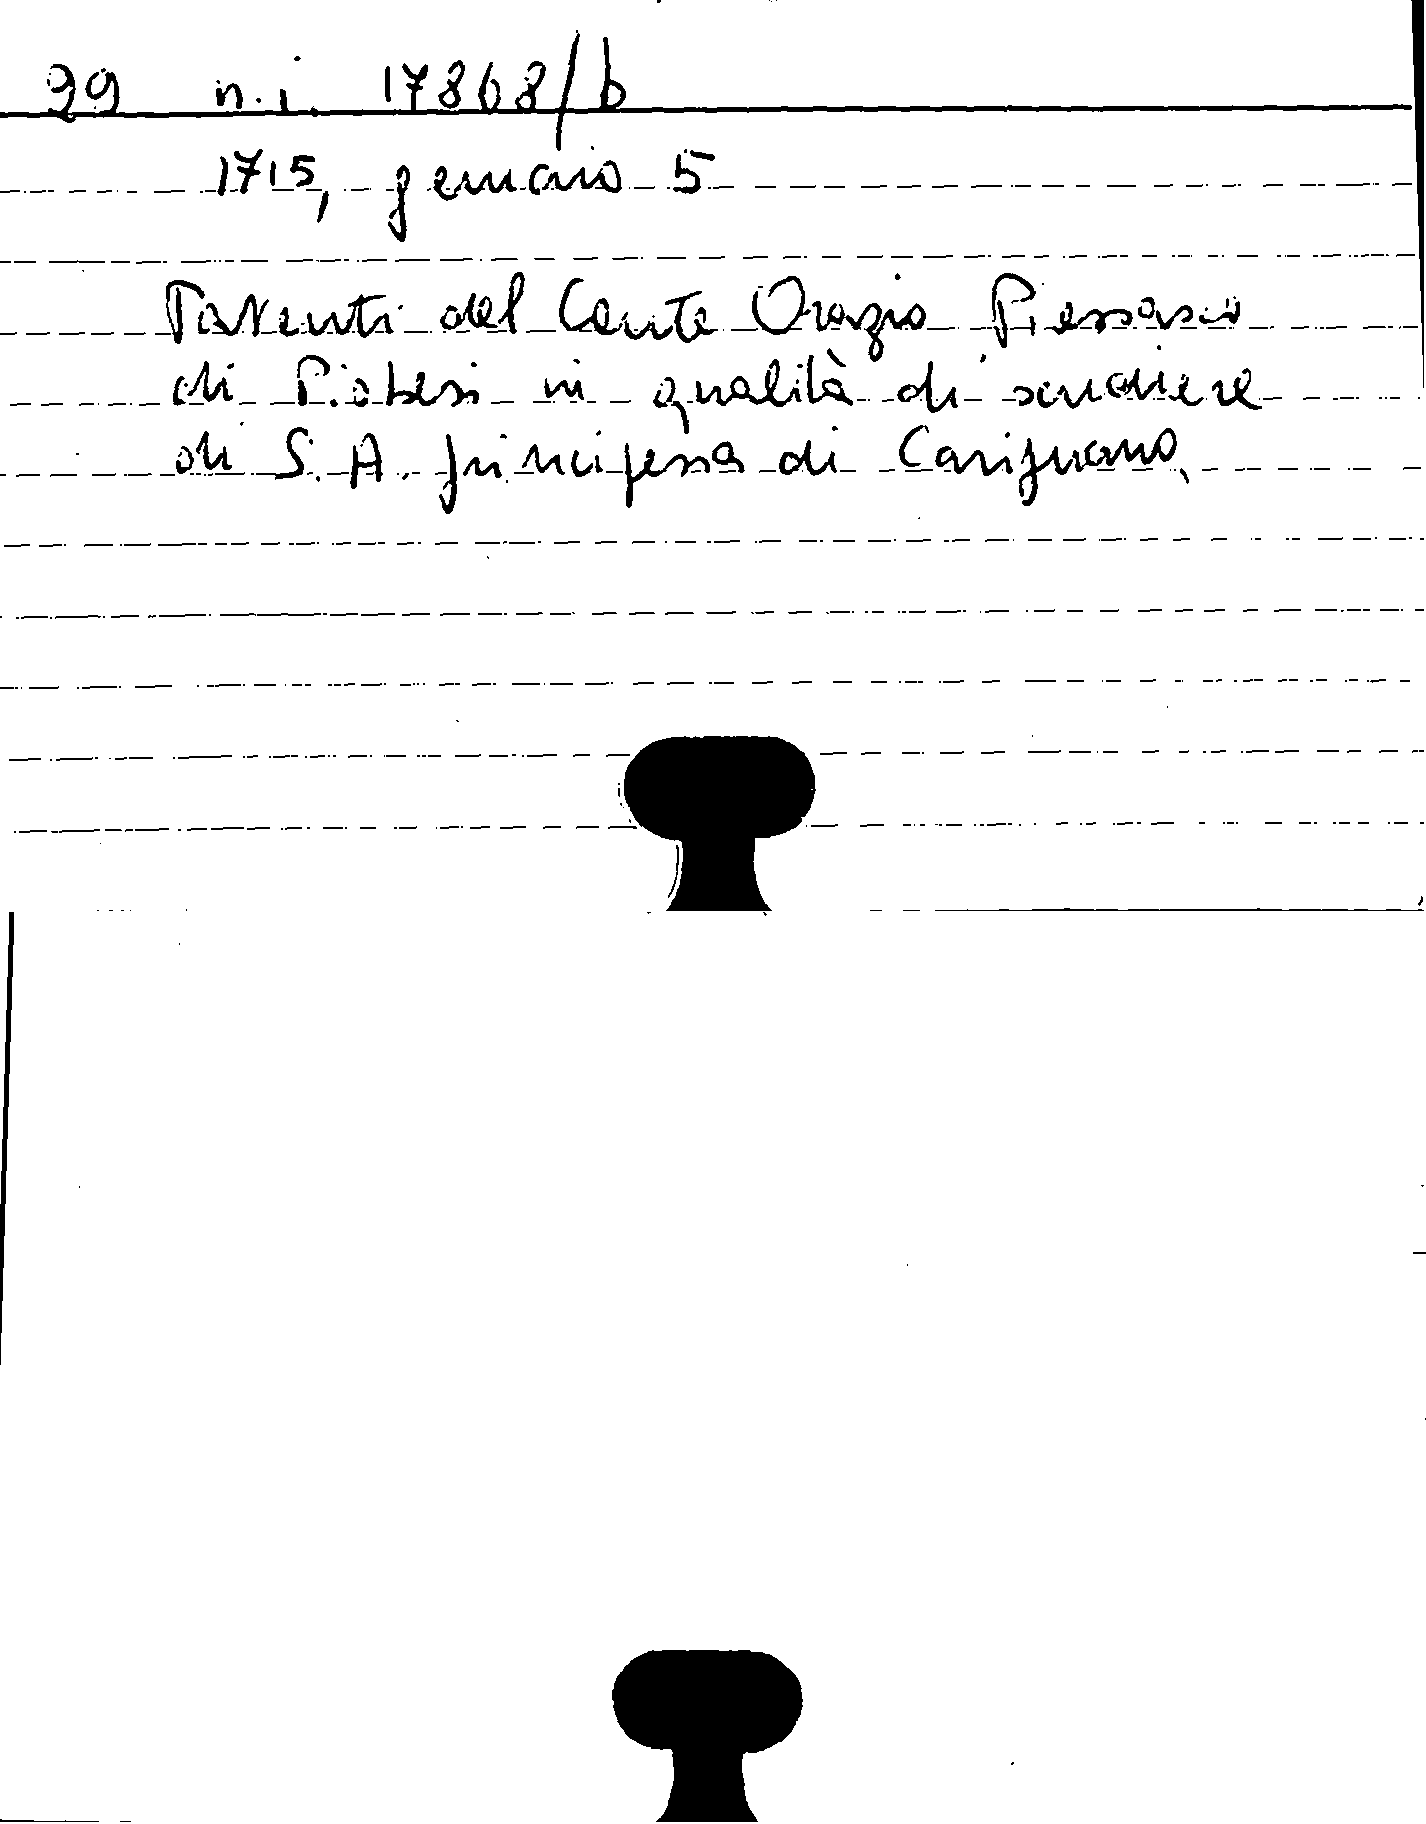 99 n.i. 17868/b
1715, gennaio 5
Patenti del Conte Orazio Piossasco
di Piobesi in qualità di scudiere
di S.A. principessa di Carignano.